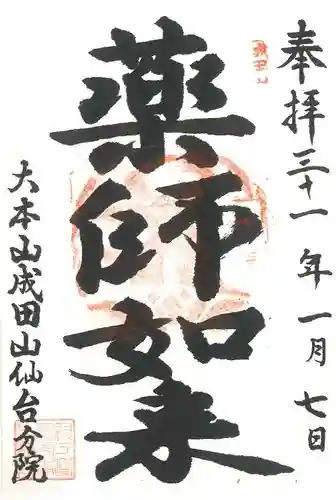 奉拝 三十一年 一月 七日
薬師如来
大本山成田山仙台分院